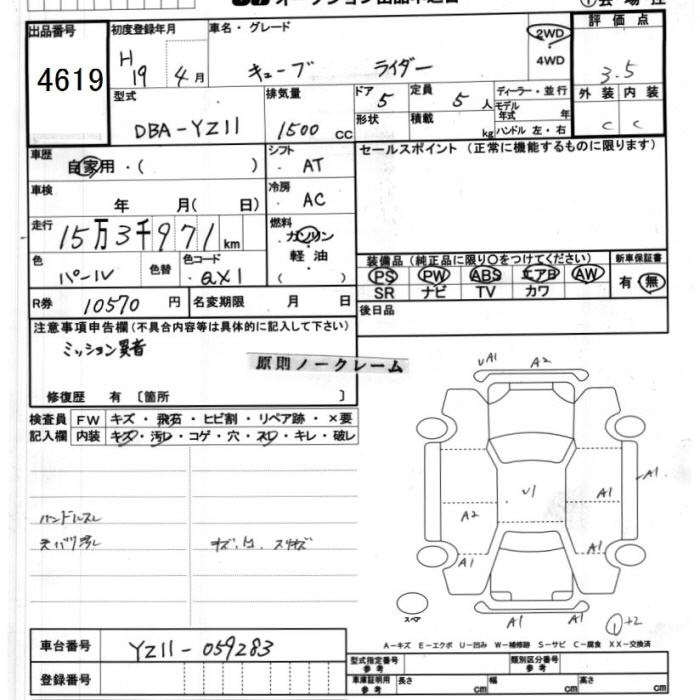 出品番号
初度登録年月
車名・グレード
評価点
4619
H19 4月
キューブ ライダー
2WD
4WD
3.5
型式
排気量
ドア
定員
ディーラー・並行
外装 内装
DBA-YZ11
1500 CC
5
5人
モデル年式 年
C C
形状
積載 kg
ハンドル 左・右
車歴
自家用・( )
シフト
AT
セールスポイント (正常に機能するものに限ります)
車検
年 月( 日)
冷房
AC
走行
15万3千971km
燃料
ガソリン
軽油
( )
色
パール
色替
色コード
QX1
装備品 (純正品に限り○をつけてください)
新車保証書
PS PW ABS エアB AW
SR ナビ TV カワ
有・無
R券 10570 円
名変期限 月 日
後日品
注意事項申告欄(不具合内容等は具体的に記入して下さい)
ミッション異音
原則ノークレーム
修復歴 有 〔箇所 〕
検査員
記入欄
FW キズ・飛石・ヒビ割・リペア跡・×要
内装 キズ・汚レ・コゲ・穴・スレ・キレ・破レ
ハンドルスレ
天バリ汚レ
UA1 A2
U1
A1
A1
A2
A1
A1
A1 A1
スペア
①+2
A-キズ E-エクボ U-凹み W-補修跡 S-サビ C-腐食 XX-交換済
車台番号 YZ11-059283
登録番号
型式指定番号 参考
類別区分番号 参考
車庫証明用 参考
長さ cm
幅 cm
高さ cm